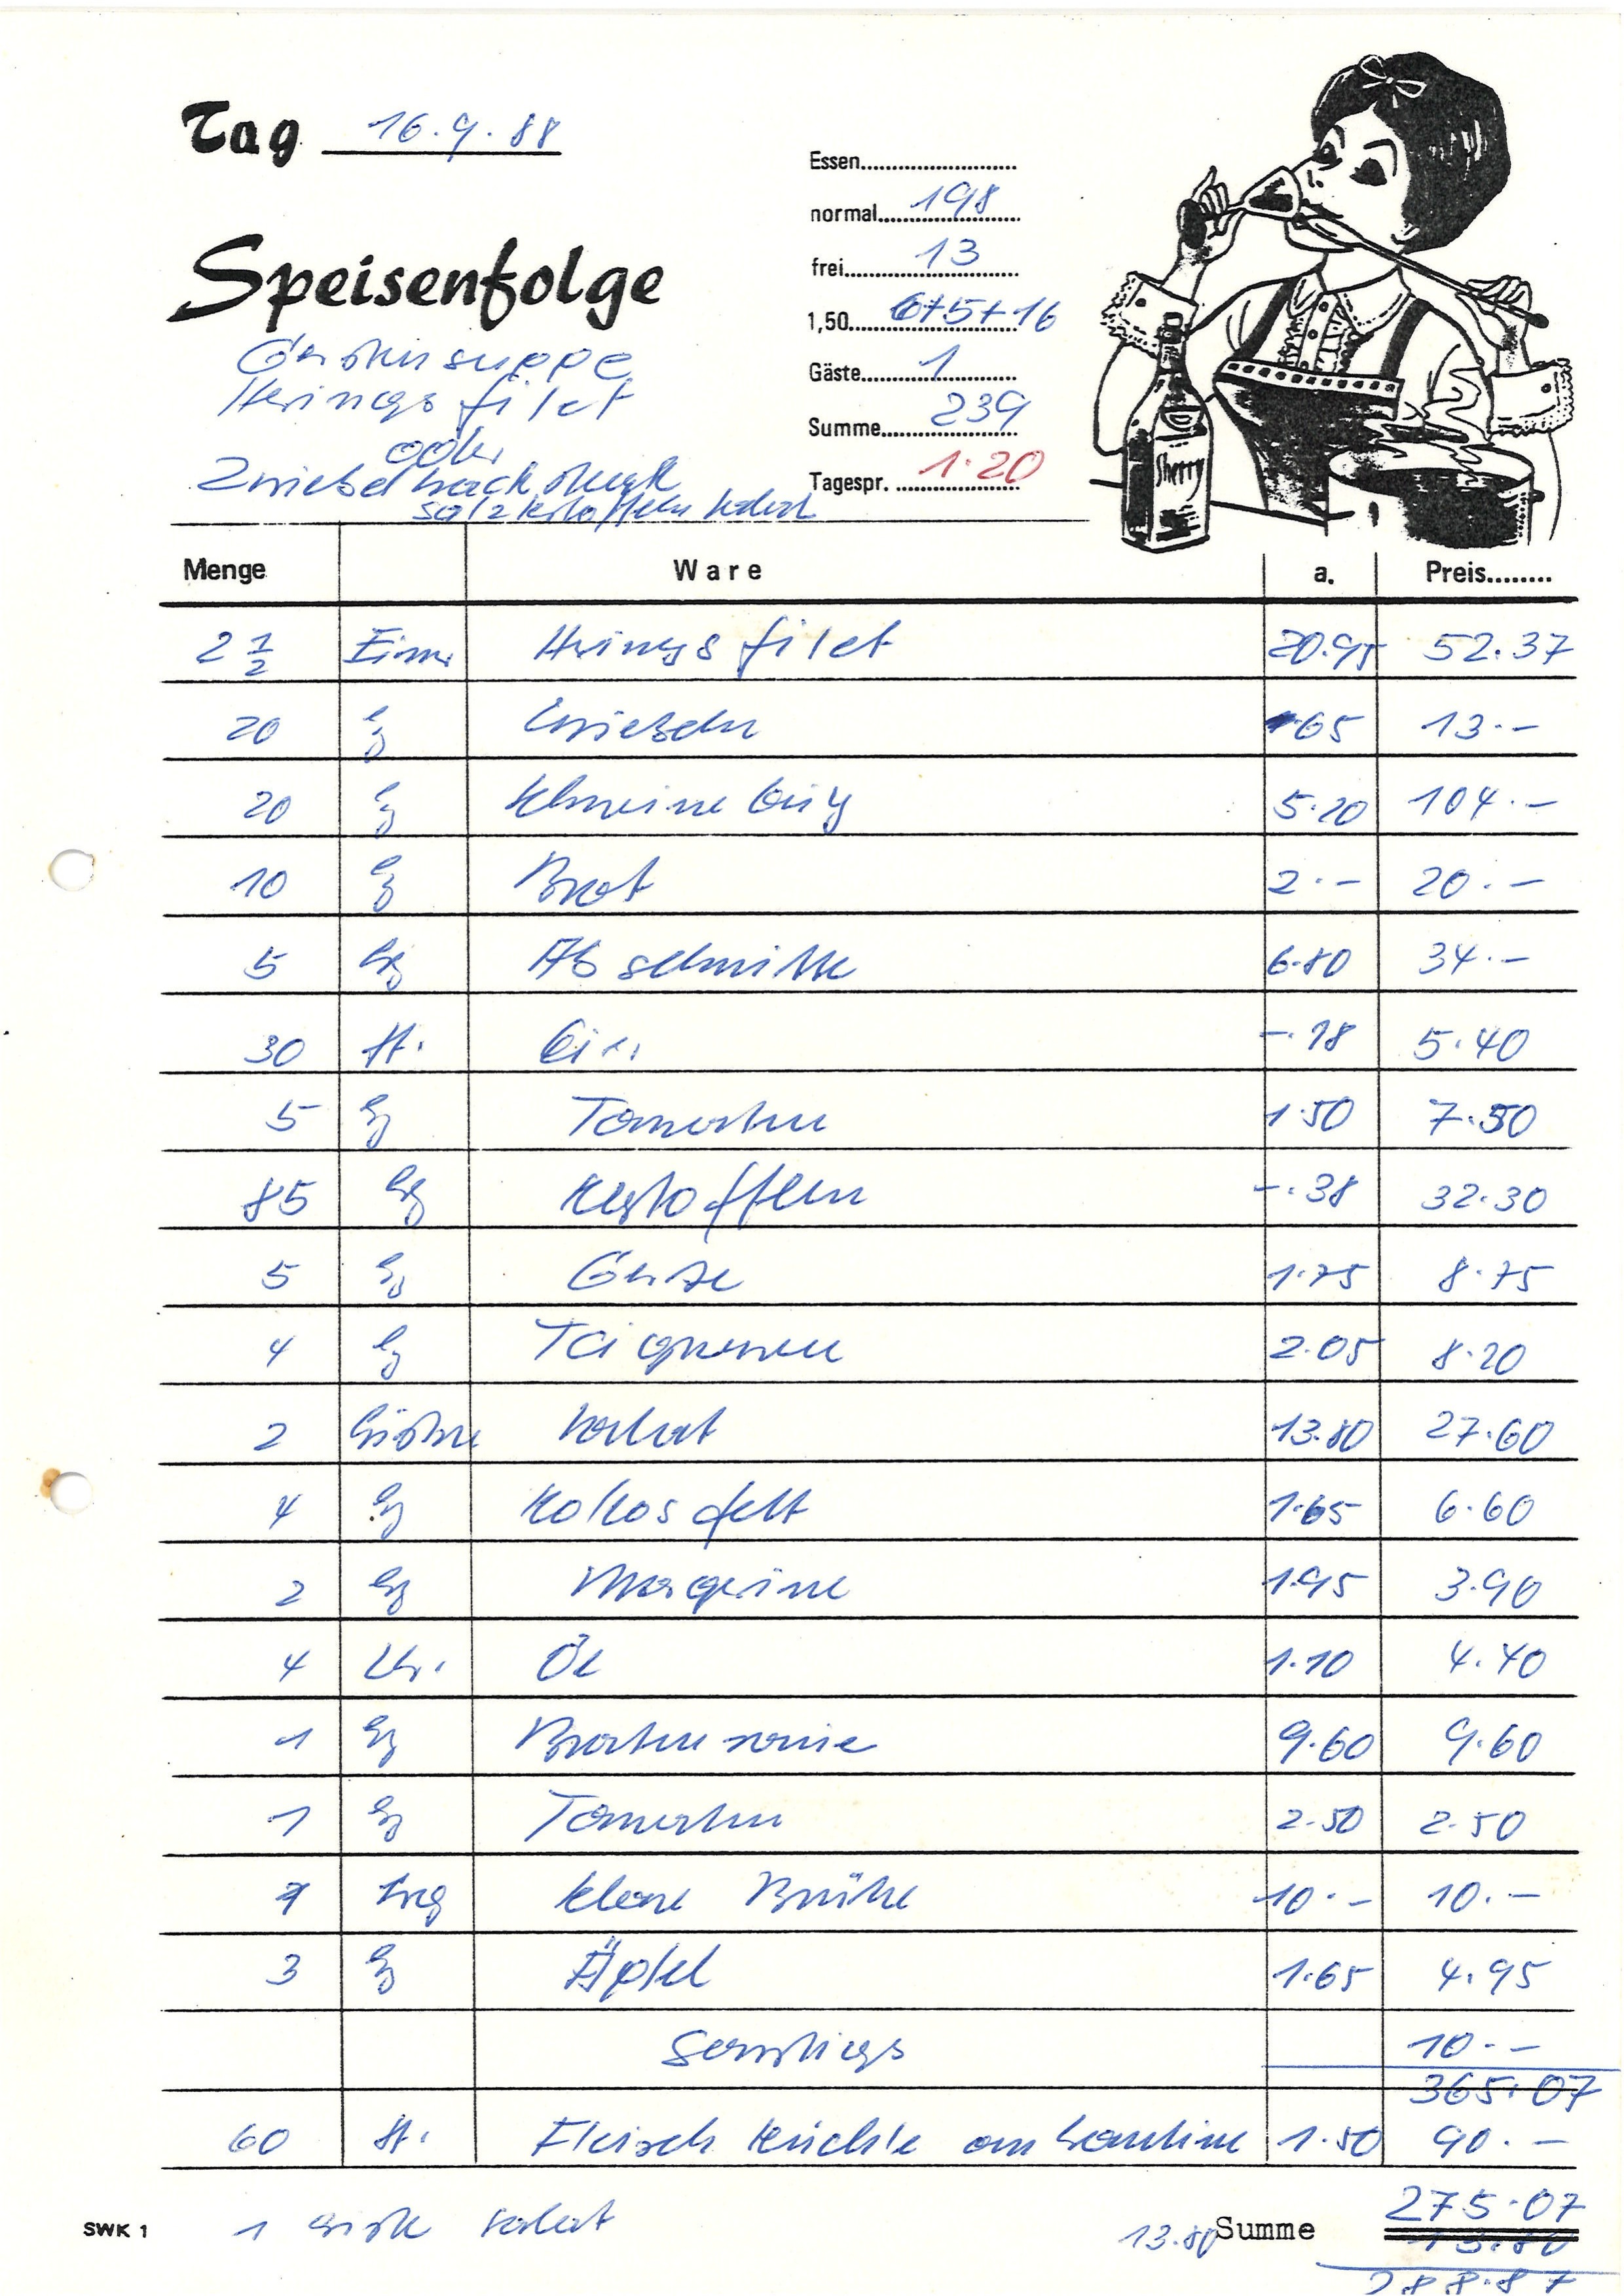 Tag 16.9.88
Essen
normal 198
frei 13
1,50 6+5+16
Gäste 1
Summe 239
Tagespr. 1.20
Speisenfolge
Gerstensuppe
Heringsfilet
oder
Zwiebelhacksteak
Salzkartoffeln Salat
Sherry
Menge Ware a. Preis
2 1/2 Eimer Heringsfilet 20.95 52.37
20 kg Zwiebeln -.65 13.-
20 kg 5.20 104.-
10 kg Brot 2.- 20.-
5 kg Abschnitte 6.80 34.-
30 St. Eier -.18 5.40
5 kg Tomaten 1.50 7.50
85 kg Kartoffeln -.38 32.30
5 kg Gerste 1.75 8.75
4 kg Teigwaren 2.05 8.20
2 Kisten Salat 13.80 27.60
4 kg Kokosfett 1.65 6.60
2 kg Margarine 1.95 3.90
4 Ltr. Öl 1.10 4.40
1 kg Bratensauce 9.60 9.60
1 kg Tomaten 2.50 2.50
1 klare Brühe 10.- 10.-
3 kg Äpfel 1.65 4.95
Sonstiges 10.-
365.07
60 St. Fleischküchle an Kantine 1.50 90.-
275.07
SWK 1 1 Kiste Salat 13.80 Summe 13.80
288.87